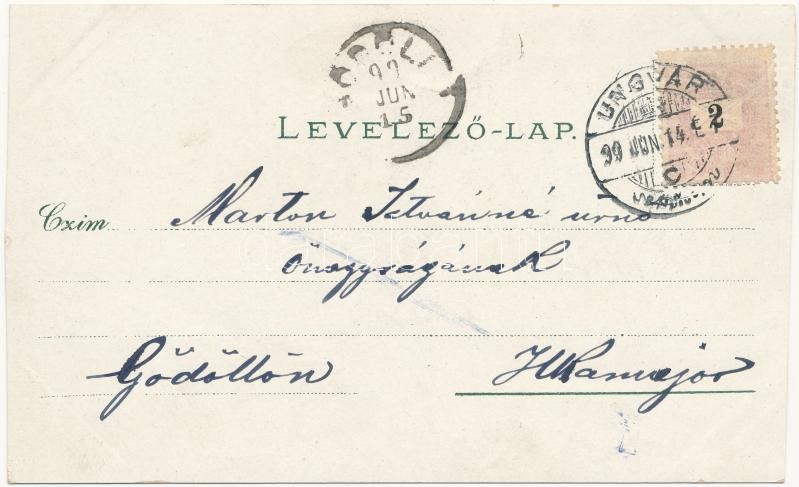 GÖDÖLLŐ
99
JUN
15
UNGVÁR
99 JUN. 14. E
C
2
LEVELEZŐ-LAP.
Czim Marton Istvánné úrnő
őnagyságának
Gödöllőn Ilkamajor
darabanth